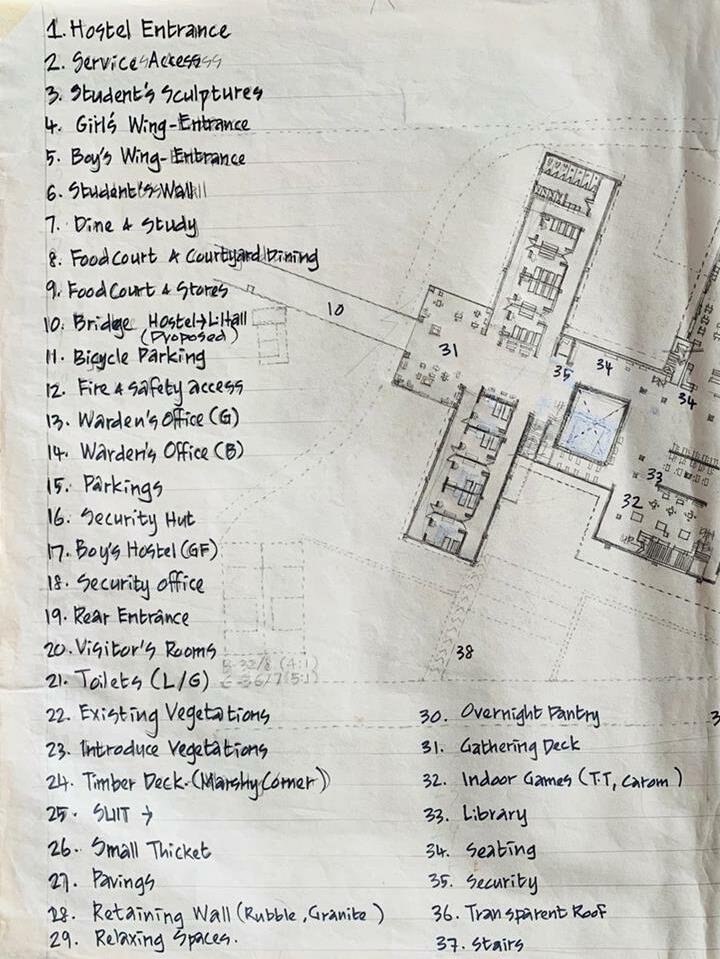 1. Hostel Entrance
2. Service Access
3. Student's Sculptures
4. Girl's Wing-Entrance
5. Boy's Wing-Entrance
6. Student's Wall
7. Dine & Study
8. Food court & Courtyard Dining
9. Food Court & Stores
10. Bridge Hostel→L.Hall
(Proposed)
11. Bicycle Parking
12. Fire & safety access
13. Warden's Office (G)
14. Warden's Office (B)
15. Parkings
16. Security Hut
17. Boy's Hostel (GF)
18. Security office
19. Rear Entrance
20. Visitor's Rooms
21. Toilets (L/G)
22. Existing Vegetations
23. Introduce Vegetations
24. Timber Deck. (Marshy Corner)
25. →
26. Small Thicket
27. Pavings
28. Retaining Wall (Rubble, Granite)
29. Relaxing Spaces.
30. Overnight Pantry
31. Gathering Deck
32. Indoor Games (T.T, Carom)
33. Library
34. Seating
35. Security
36. Transparent Roof
37. Stairs
10
31
35
34
34
33
32
38
B-32/8 (4:1)
6-36/7 (5:1)
3